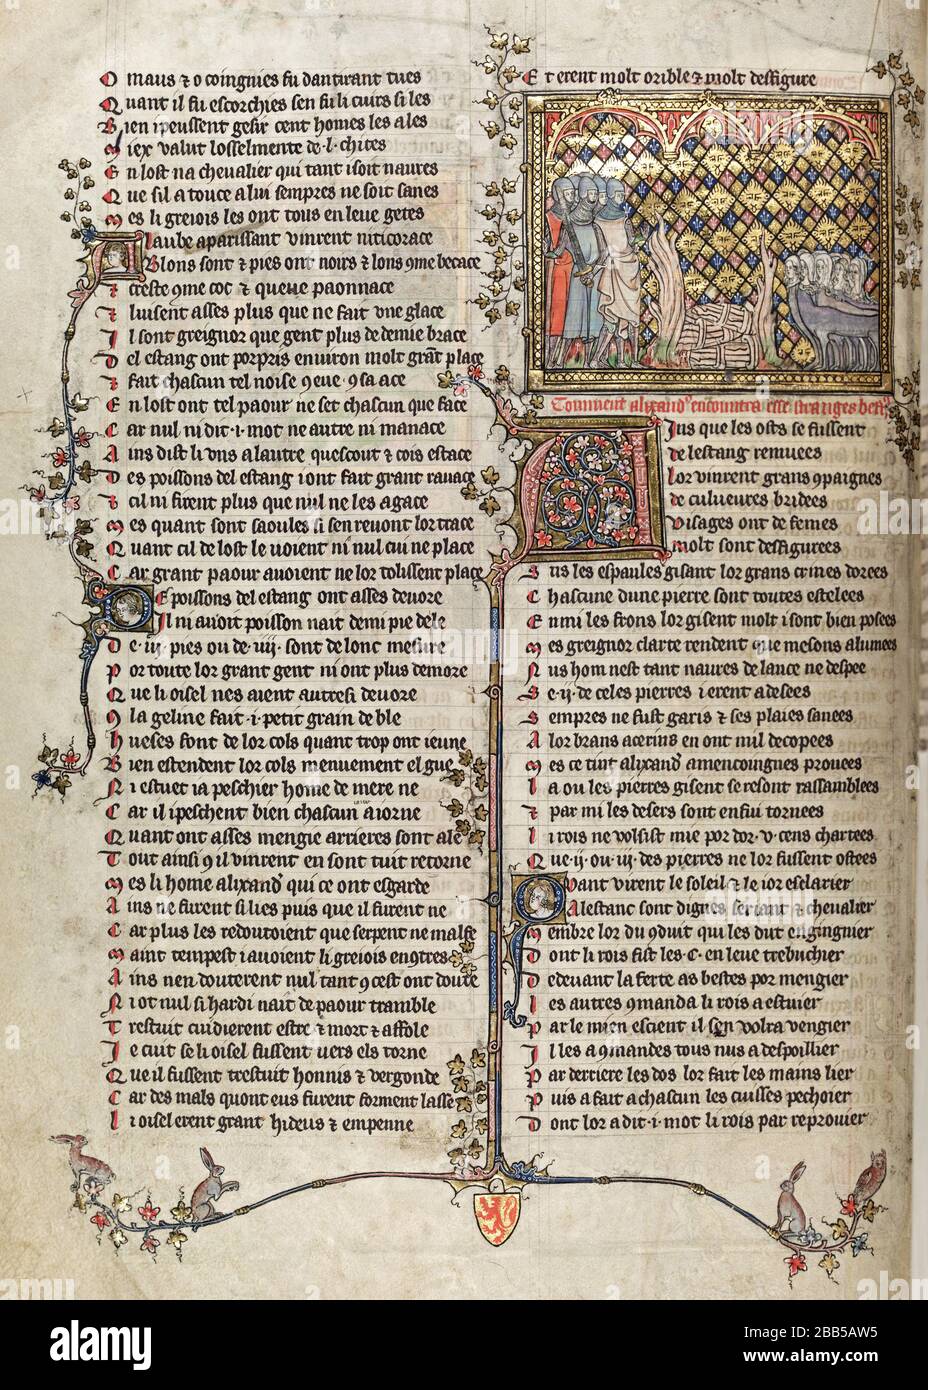 O maus & o coingnies fu dantirant tues
Quant il fu escorchies sen fu li cuirs si les
Bien i peussent gesir cent homes les ales
Miex valut lossemente de .l. chites
En lost na chevalier qui tant i soit naures
Que sil a touce a lui sempres ne soit sanes
Mes li greiois les ont tous en leue getes
Laube aparissant vinrent niticorace
Blons sont & pies ont noirs & lons 9me becace
& creste 9me coc & queue paonnace
& luisent asses plus que ne fait vne glace
Il sont greignor que gent plus de demie brace
Del estang ont porpris enuiron molt grāt place
& fait chascun tel noise 9 eue 9 sa ace
En lost ont tel paour ne set chascun que face
Car nul ni dit .i. mot ne autre ni manace
Ains dist li vns a lautre quescout & cois estace
Des poissons del estang i ont fait grant rauace
& cil ni firent plus que nul ne les agace
Mes quant sont saoules si sen reuont lor trace
Quant cil de lost le uoient ni nul cui ne place
Car grant paour auoient ne lor tolissent place
De poissons del estang ont asses deuore
Il ni auoit poisson nait demi pie de le
De .iij. pies ou de .iiij. sont de lonc mesure
Por toute lor grant gent ni ont plus demore
Que li oisel nes aient autresi deuore
9 la geline fait .i. petit grain de ble
hueses font de lor cols quant trop ont ieune
Bien estendent lor cols menuement el gue
Ni estuet ia peschier home de mere ne
Car il i peschent bien chascun a iorne
Quant ont asses mengie arrieres sont ale
Tout ainsi 9 il vinrent en sont tuit retorne
Mes li home alixand' qui ce ont esgarde
Ains ne furent si lies puis que il furent ne
Car plus les redoutoient que serpent ne malfe
Maint tempest i auoient li greiois en9tres
Ains nen douterent nul tant 9 cest ont doute
Ni ot nul si hardi nait de paour tramble
Trestuit cuidierent estre & mort & afole
Ie cuit se li oisel fussent uers els torne
Que il fussent trestuit honnis & vergonde
Car des mals quont eus furent forment lasse
Li oisel erent grant hideus & empenne
Et erent molt orible & molt desfigure
Comment alixand' encountra esse stranges best'
Ains que les osts se fussent
de lestang remuees
lor vinrent grans 9paignes
de culueures bridees
visages ont de femes
molt sont desfigurees
Sus les espaules gisant lor grans crines dorees
Chascune dune pierre sont toutes estelees
Enmi les frons lor gisent molt i sont bien posees
Mes greignor clarte rendent que mesons alumees
Nus hom nest tant naures de lance ne despee
Se .ij. de celes pierres i erent adesees
Sempres ne fust garis & ses plaies sanees
A lor brans acerins en ont mil decopees
Mes ce tint alixand' a mencoingnes prouees
La ou les pierres gisent se resont rassamblees
& par mi les desers sont en fui tornees
Li rois ne volsist mie por dor .v. cens chartees
Que .ij. ou .iij. des pierres ne lor fussent ostees
Quant virent le soleil & le ior esclarier
A lestanc sont dignes seriant & cheualier
Membre lor du 9duit qui les dut engingnier
Dont li rois fist les .c. en leue trebuchier
Deuant la ferte as bestes por mengier
Les autres 9manda li rois a estuier
Par le mien escient il sen volra vengier
Il les a 9mandes tous nus a despoillier
Par derriere les dos lor fait les mains lier
Puis a fait a chascun les cuisses pechoier
Dont lor a dit .i. mot li rois par reprouier
alamy
Image ID: 2BB5AW5
www.alamy.com